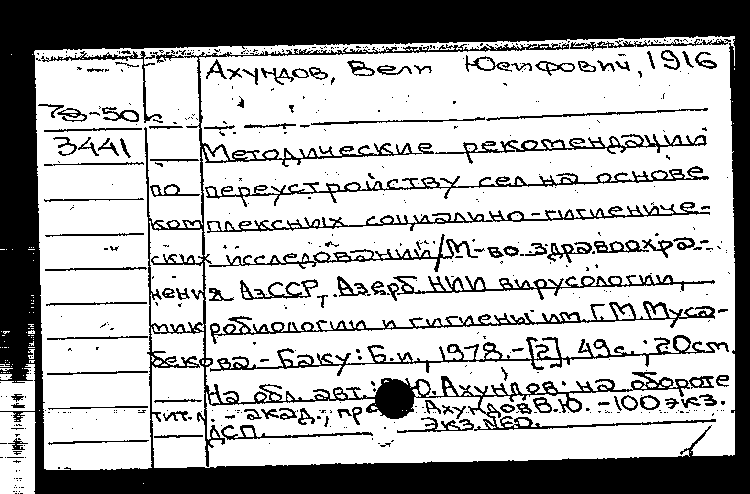 Ахундов, Вели Юсифович, 1916
78-50к.
3441
Методические рекомендации
по переустройству сел на основе
комплексных социально-гигиениче-
ских исследований/М-во здравоохра-
нения АзССР, Азерб. НИИ вирусологии,
микробиологии и гигиены им. Г.М. Муса-
бекова.- Баку: Б.и., 1978.-[2], 49с.; 20см.
На обл. авт.: Ю. Ахундов; на обороте
тит.л. - акад., Ахундов В.Ю. -100 экз.
ДСП. Экз. №60.